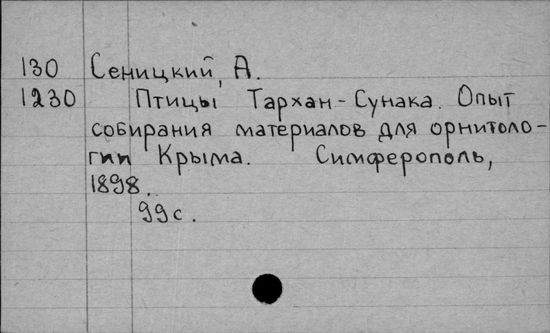 130 Сеницкий, А.
1230 Птицы Тархан-Сунака. Опыт
собирания материалов для орнитоло-
гии Крыма. Симферополь,
1898.
99с.